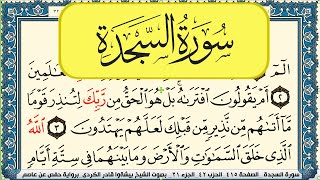 سُورَةُ السَّجْدَةِ
الٓمٓ
ٱلْعَٰلَمِينَ
٢ أَمْ يَقُولُونَ ٱفْتَرَىٰهُ بَلْ هُوَ ٱلْحَقُّ مِن رَّبِّكَ لِتُنذِرَ قَوْمًا
مَّآ أَتَىٰهُم مِّن نَّذِيرٍ مِّن قَبْلِكَ لَعَلَّهُمْ يَهْتَدُونَ ٣ ٱللَّهُ
ٱلَّذِى خَلَقَ ٱلسَّمَٰوَٰتِ وَٱلْأَرْضَ وَمَا بَيْنَهُمَا فِى سِتَّةِ أَيَّامٍ
سورة السجدة - الصفحة ٤١٥ الحزب ٤٢ الجزء ٢١ - بصوت الشيخ بيشةوا قادر الكردي - برواية حفص عن عاصم